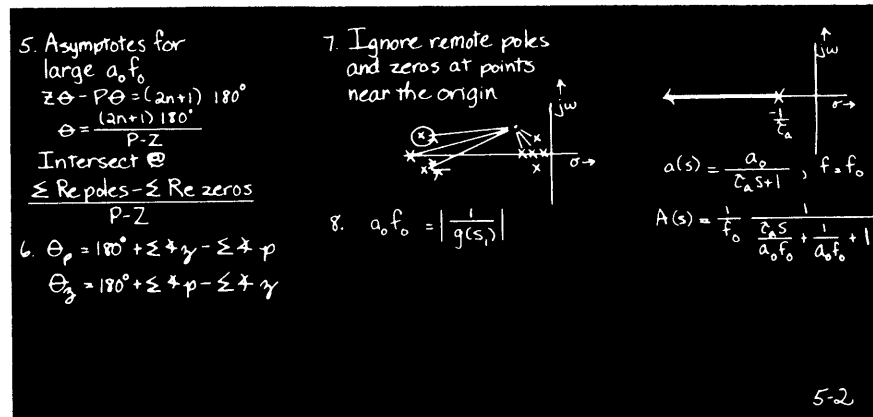 5. Asymptotes for
large a₀f₀
Zθ - Pθ = (2n+1) 180°
θ = (2n+1) 180° / P-Z
Intersect @
Σ Re poles - Σ Re zeros / P-Z
6. θₚ = 180° + Σ∡z - Σ∡p
θ_z = 180° + Σ∡p - Σ∡z
7. Ignore remote poles
and zeros at points
near the origin
jω
σ→
8. a₀f₀ = |1/g(s₁)|
jω
σ→
-1/τₐ
a(s) = a₀/(τₐs+1), f = f₀
A(s) = 1/f₀ 1/(τₐs/a₀f₀ + 1/a₀f₀ + 1)
5-2